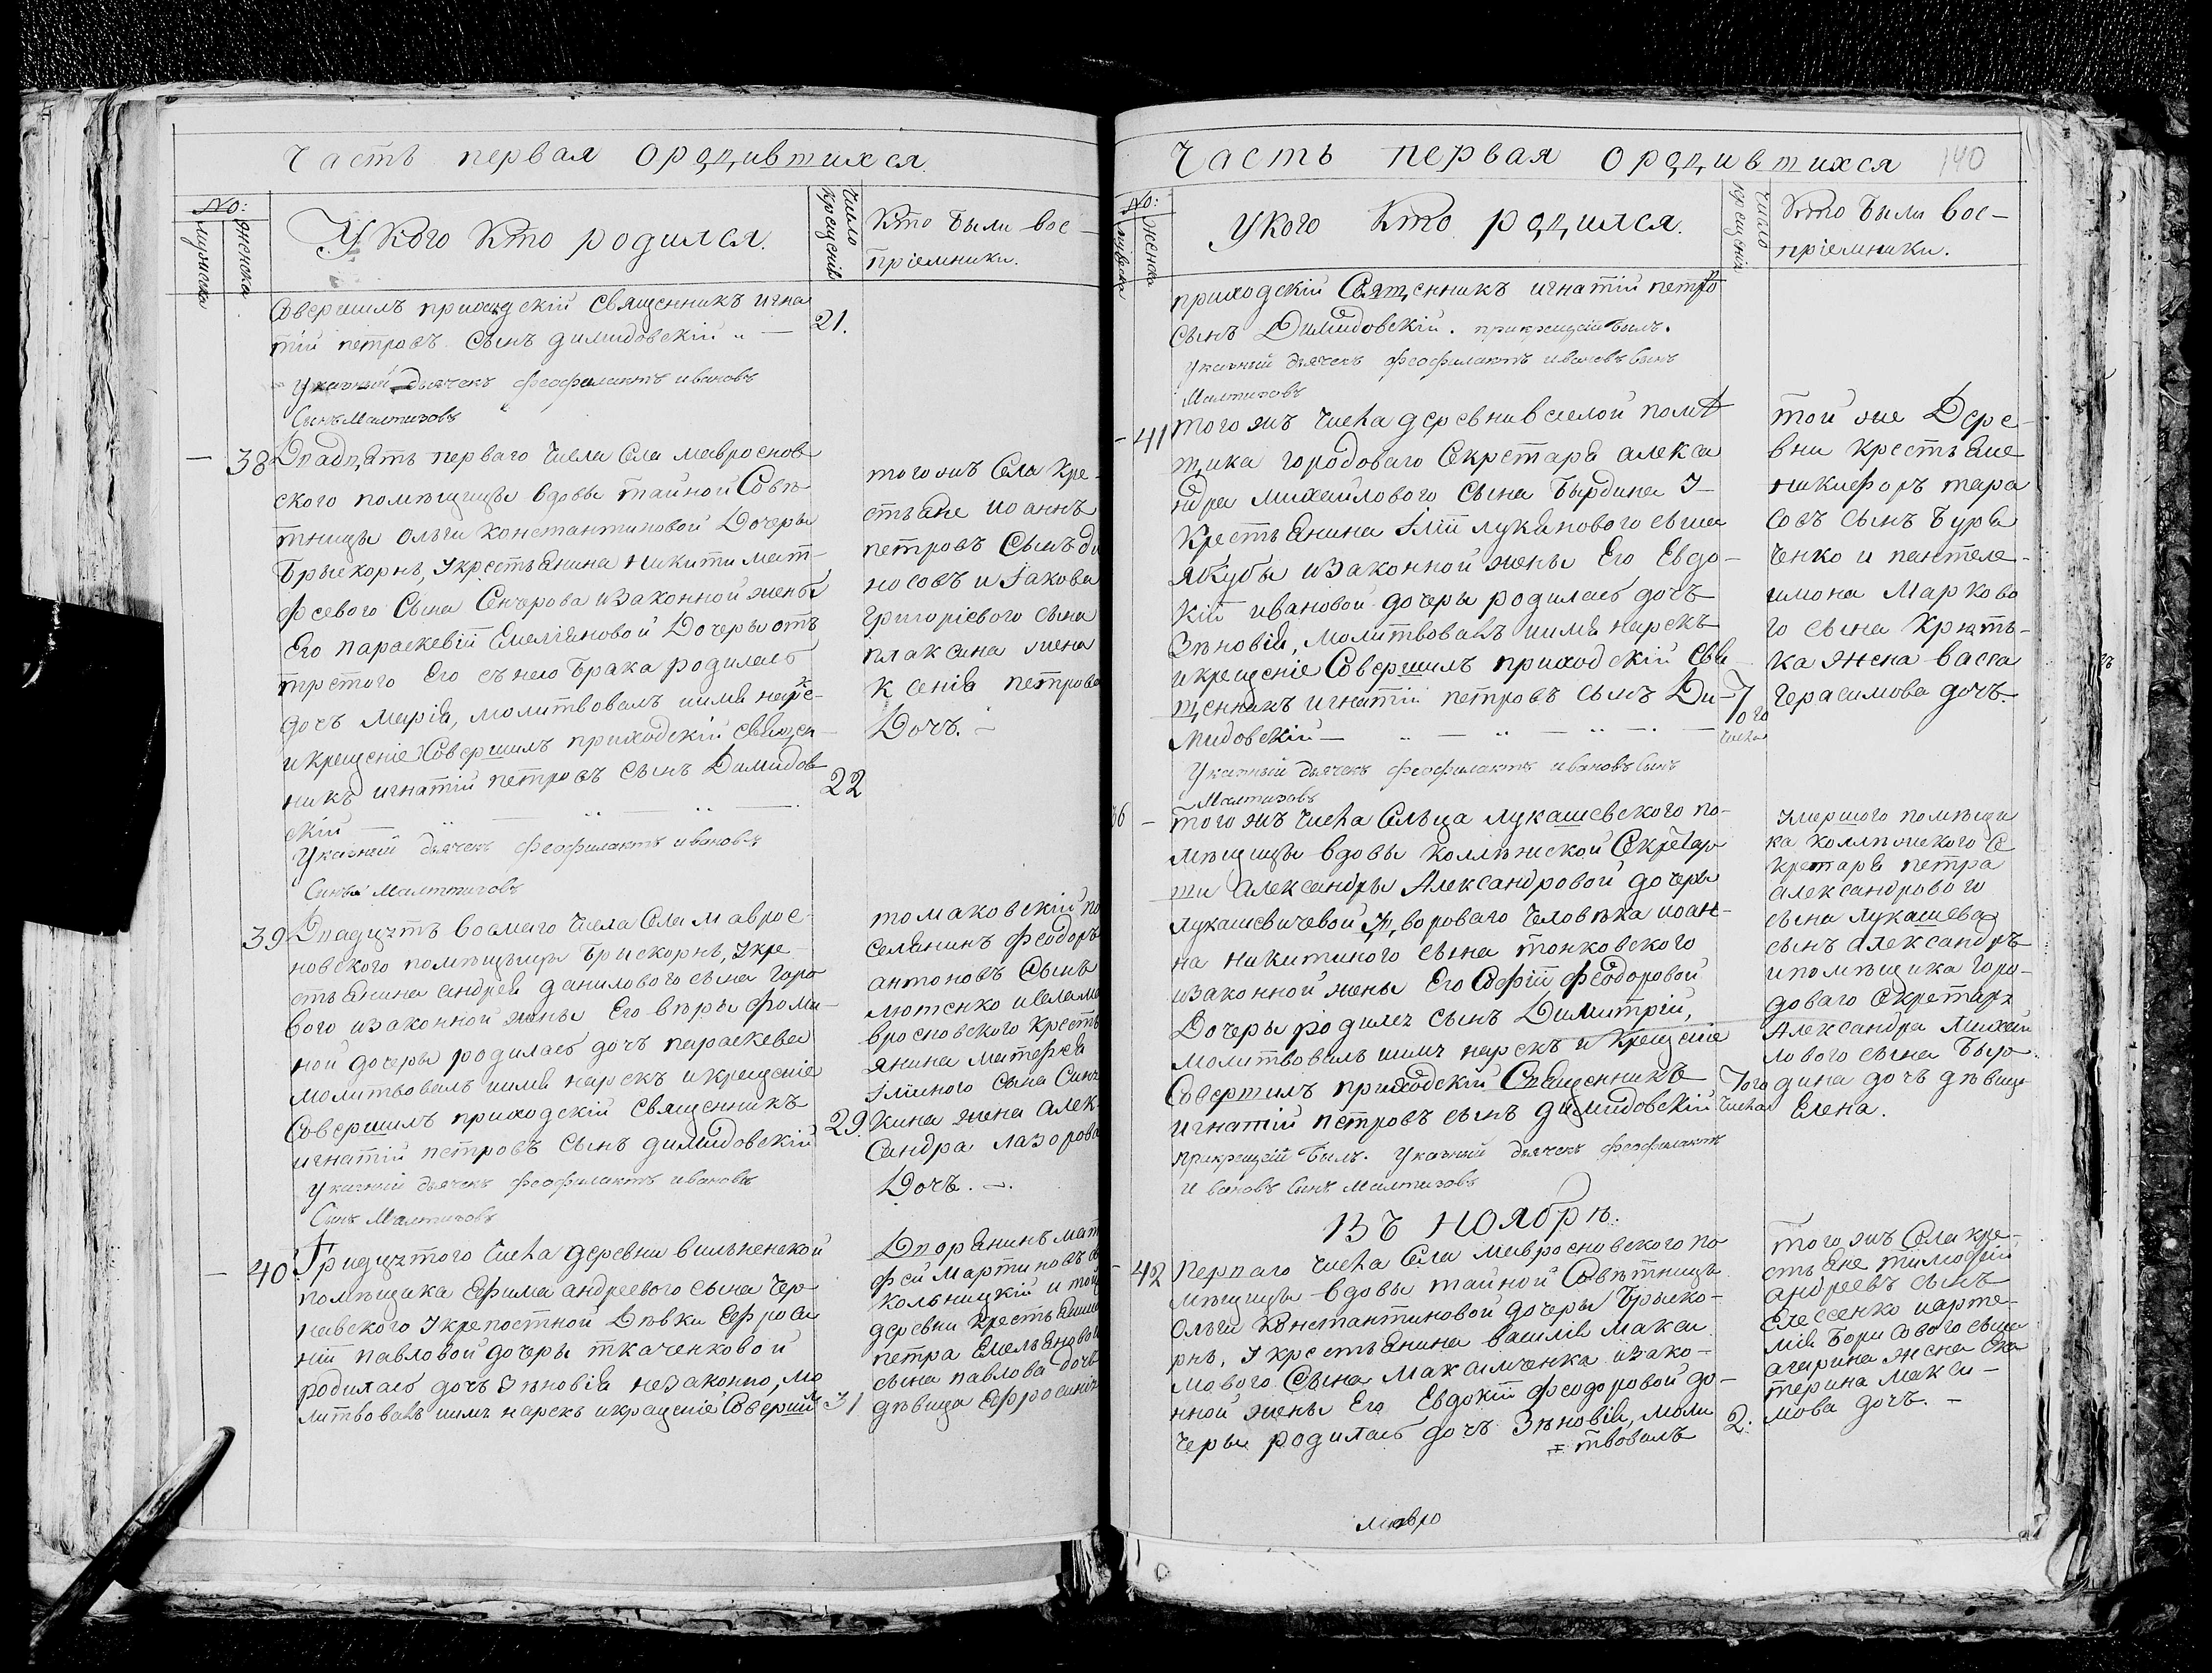 Часть первая ородившихся
No:
мужеска
женска
У кого кто родился.
число
крещенія
Кто были вос-
пріемники.
Совершилъ приходскій священникъ игна
тій петровъ сынъ димидовскій
21.
Указный дьячекъ феофилактъ ивановъ
Сынъ Малтизовъ
— 38
Двадцать перваго числа Села мавроснов
ского помѣщицы вдовы тайной Совѣ-
тницы ольги константиновой Дочеры
Брыскорнъ, Укрестьянина Никиты мат-
феевого Сына Сенчерова изаконной жены
Его параскевій Емелiановой Дочеры отъ
третого Его сънею брака родилась
дочъ марія, молитвовалъ имя нарекъ
и крещеніе Совершилъ приходскій священ-
никъ игнатій петровъ сынъ Димидов
скій
22
тогожъ Села кре-
стьяне иоаннъ
петровъ Сынъ ди
носовъ и Іакова
григорієвого сына
плаксина жена
ксенія петрова
Дочъ. —
Указный дьячекъ Феофилактъ ивановъ
Сынъ Малтизовъ
39
Двадцять восмаго числа Села мавросе-
новского помѣщицы Брискорнъ, Укре-
стьянина андрея данилового сына горо
вого изаконной жены Его вѣры фоми-
ной дочеры родилась дочъ параскева
молитвовалъ имя нарекъ и крещеніе
Совершилъ приходскій священникъ
игнатій петровъ сынъ димидовскій
29.
томаковскій по
селянинъ феодоръ
антоновъ Сынъ
лютенко и села ма
вросновского кресть
янина матфея
Іліиного сына Синч
кина жена алек
сандра лазорова
Дочъ. —.
Указный дьячекъ феофилактъ ивановъ
Сынъ Малтизовъ
— 40
Тридцятого числа деревни вильненской
помѣщика Ефима андреевого сына Чер-
невского Укрепостной Дѣвки Ефроси
ній павловой дочеры ткаченковой
родилась дочъ Зѣновія незаконно, мо
литвовалъ имя нарекъ и крещеніе Соверши
31
Дворянинъ мат
фей Мартиновъ с
кольницкій и той
деревни крестьянина
петра Емельянового
сына павлова дочъ
дѣвица Ефросинія
Часть первая ородившихся
140
No:
мужеска
женска
У кого кто родился.
число
крещенія
Кто были вос-
пріемники.
приходскій Священникъ игнатій петро
сынъ Димидовскій. прикрещеніи былъ.
Указный дьячекъ феофилактъ ивановъ сынъ
Малтизовъ
— 41
тогожъ числа деревни веселой помѣ
щика городоваго Секретаря алекса
ндра михайлового Сына Бырдина У-
Крестьянина Іліи лукянового сына
Якубы изаконной жены Его Евдо-
кіи ивановой дочеры родилась дочъ
Зѣновія, молитвовалъ имя нарекъ
и крещеніе Совершилъ приходскій Свя
щенникъ игнатій петровъ сынъ Ди-
мидовскій —
7ого
числа
той же Дере-
вни крестьяне
никифоръ тара
совъ сынъ Буря
ченко и пантеле-
имона Марково
го сына Крять-
ка жена васса
герасимова дочъ.
Указный дьячекъ феофилактъ ивановъ сынъ
Малтизовъ
36 —
тогожъ числа Сельца лукашевского по-
мѣщицы вдовы колѣжской Секретар
ши Александры Александровой дочеры
лукашевичевой У дворового человѣка иоан-
на никитиного сына тонковского
изаконной жены Его Софіи феодоровой
Дочеры родился сынъ Димитрій,
молитвовалъ имя нарекъ и крещеніе
Совершилъ приходскій Священникъ
игнатій петровъ сынъ димидовскій
7ого
числа
Умершого помѣщи
ка коллѣжского Се
кретаря петра
александрового
сына лукашева
сынъ александръ
и помѣщика горо-
доваго секретаря
Александра Михай
лового сына Быр-
дина дочъ дѣвица
Елена.
прикрещеніи былъ. Указный дьячекъ феофилактъ
Ивановъ сынъ Малтизовъ
Въ Ноябрѣ.
— 42
Перваго числа Села мавросновского по
мѣщицы вдовы тайной Совѣтницы
Ольги константиновой дочеры Брыско-
рнъ, Укрестьянина василія макси
мового Сына Максимченка изако-
нной жены Его Евдокіи феодоровой до-
черы родилась дочъ Зѣновія, моли
= твовалъ
2.
тогожъ Села кре-
стьяне тимофій
андреевъ сынъ
и арте-
мія Борисового сына
жена Ека
терина макси-
мова дочъ. —
мавро